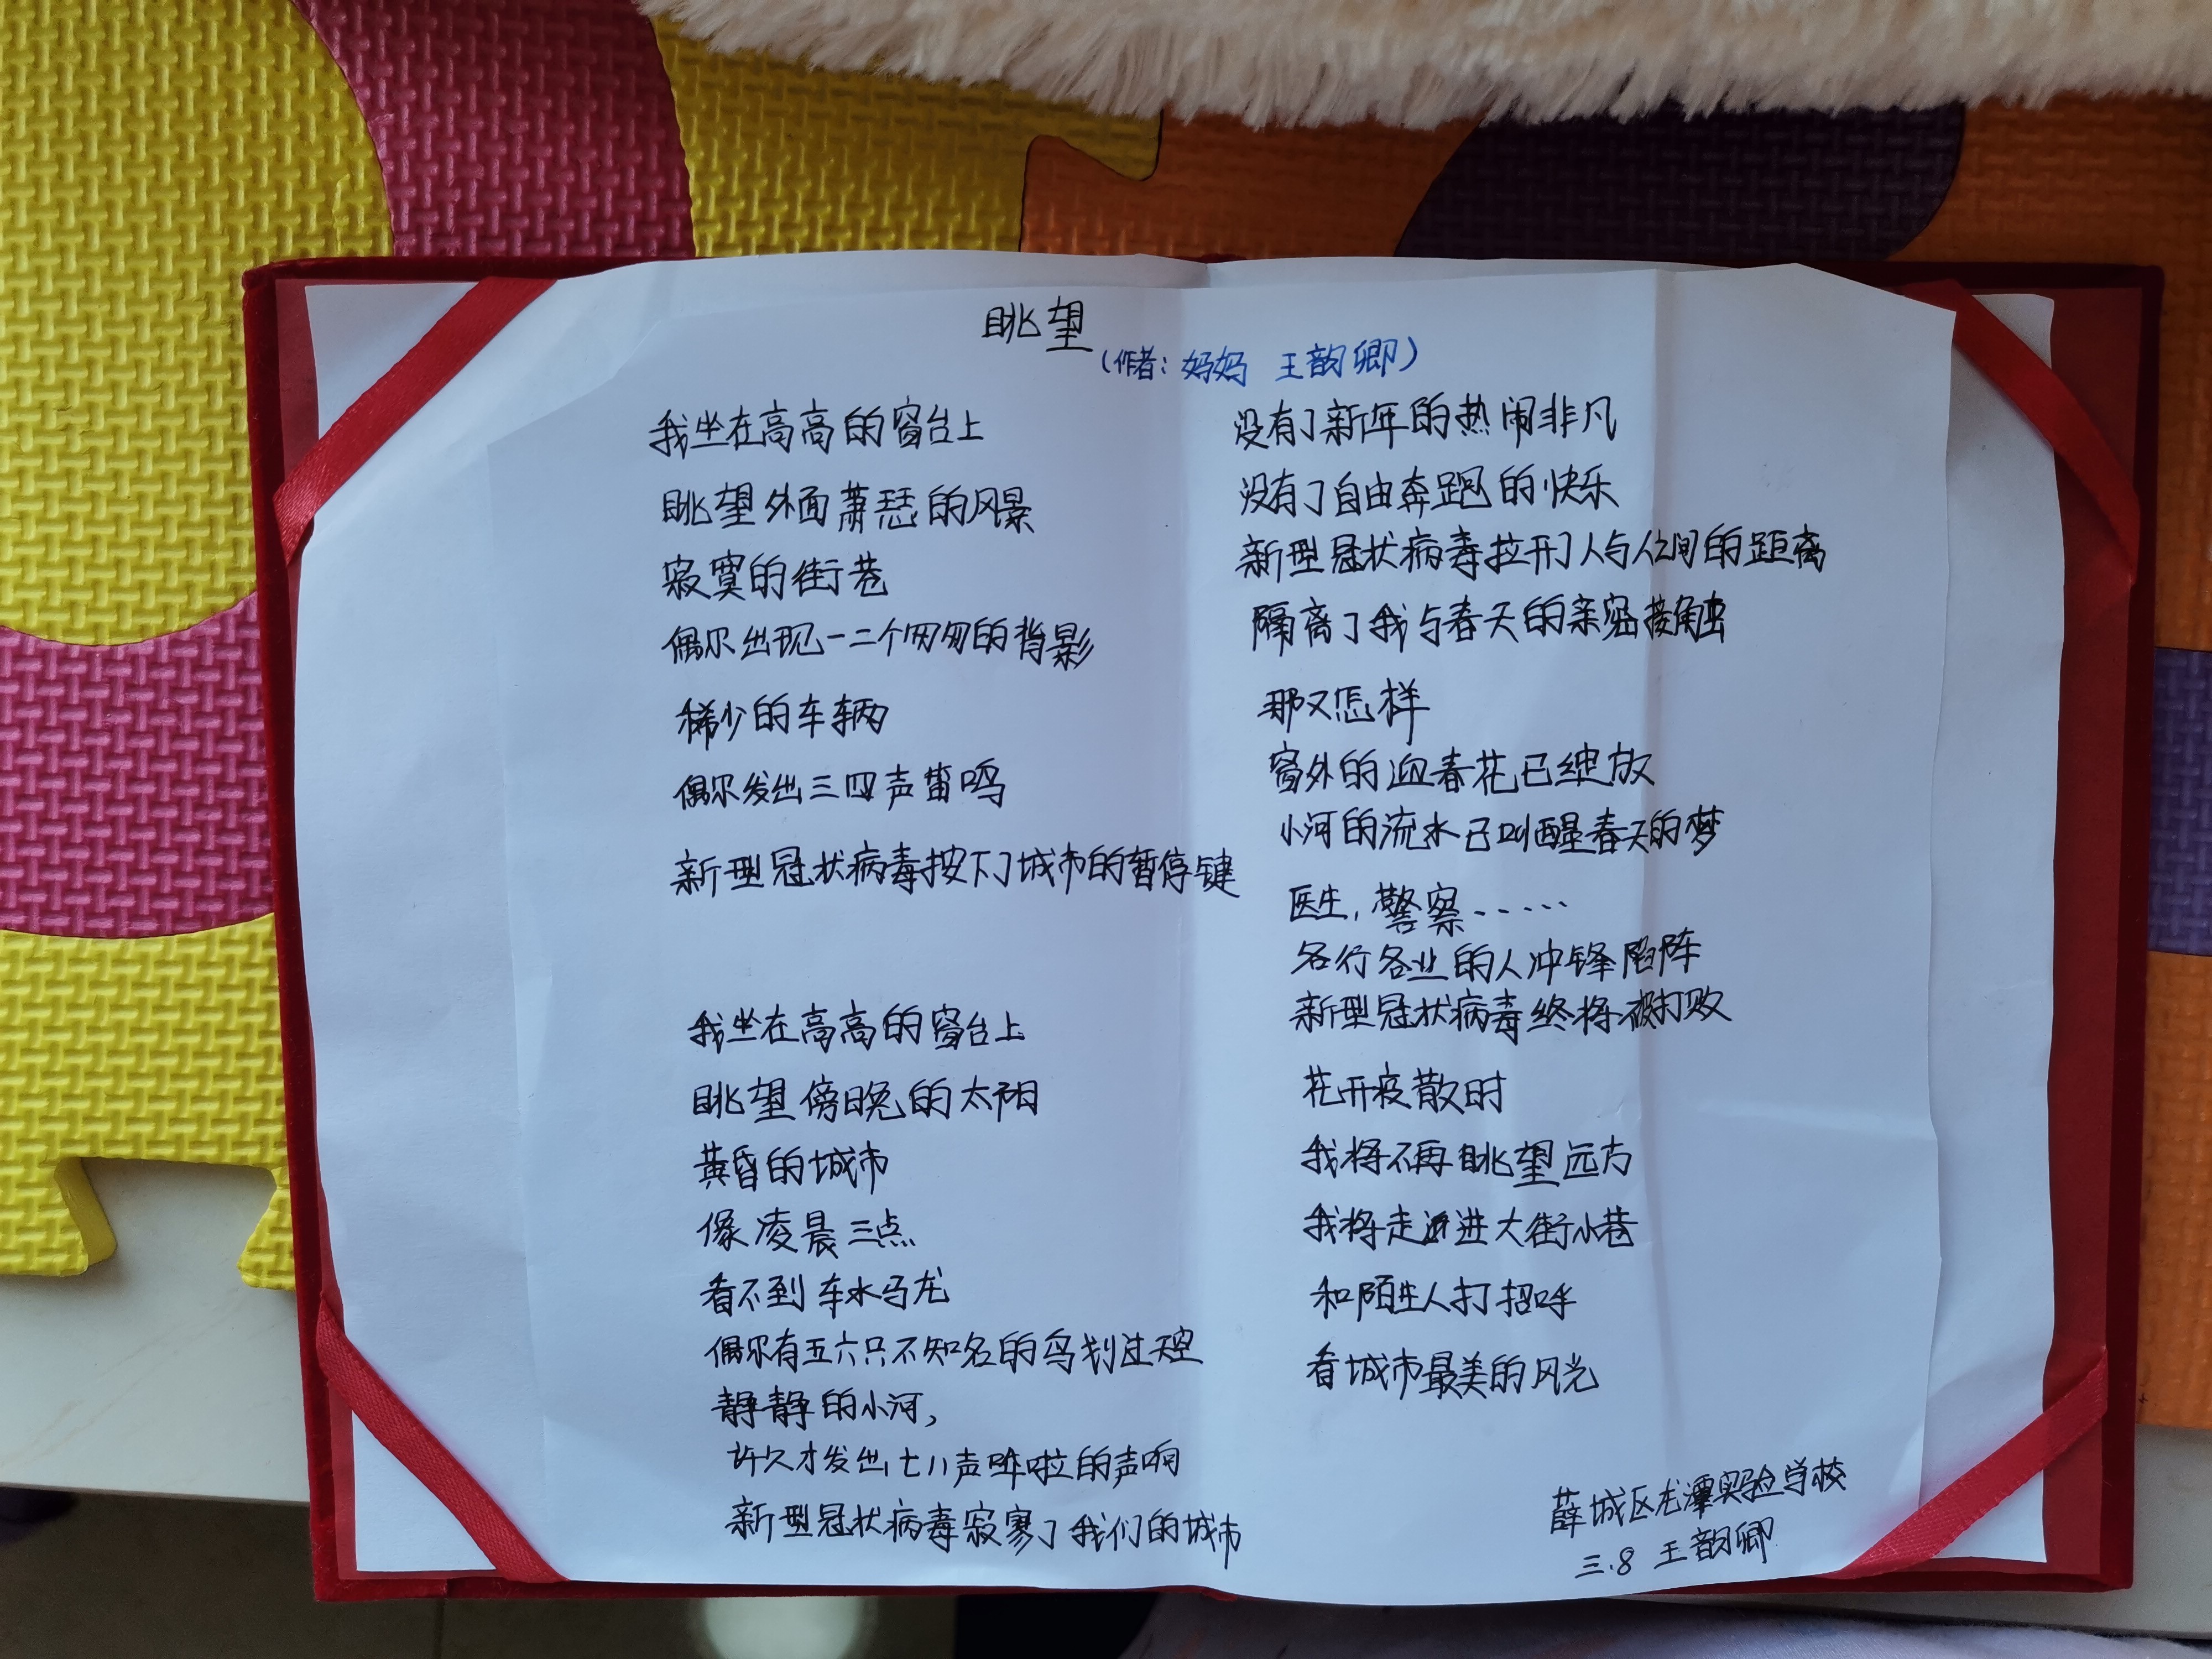 眺望
(作者：妈妈 王韵卿)
我坐在高高的窗台上
眺望外面萧瑟的风景
寂寞的街巷
偶尔出现一二个匆匆的背影
稀少的车辆
偶尔发出三四声笛鸣
新型冠状病毒按下了城市的暂停键
我坐在高高的窗台上
眺望傍晚的太阳
黄昏的城市
像凌晨三点
看不到车水马龙
偶尔有五六只不知名的鸟划过天空
静静的小河，
许久才发出七八声哗啦的声响
新型冠状病毒寂寥了我们的城市
没有了新年的热闹非凡
没有了自由奔跑的快乐
新型冠状病毒拉开了人与人之间的距离
隔离了我与春天的亲密接触
那又怎样
窗外的迎春花已绽放
小河的流水已叫醒春天的梦
医生，警察……
各行各业的人冲锋陷阵
新型冠状病毒终将被打败
花开疫散时
我将不再眺望远方
我将走进大街小巷
和陌生人打招呼
看城市最美的风光
薛城区龙潭实验学校
三.8 王韵卿